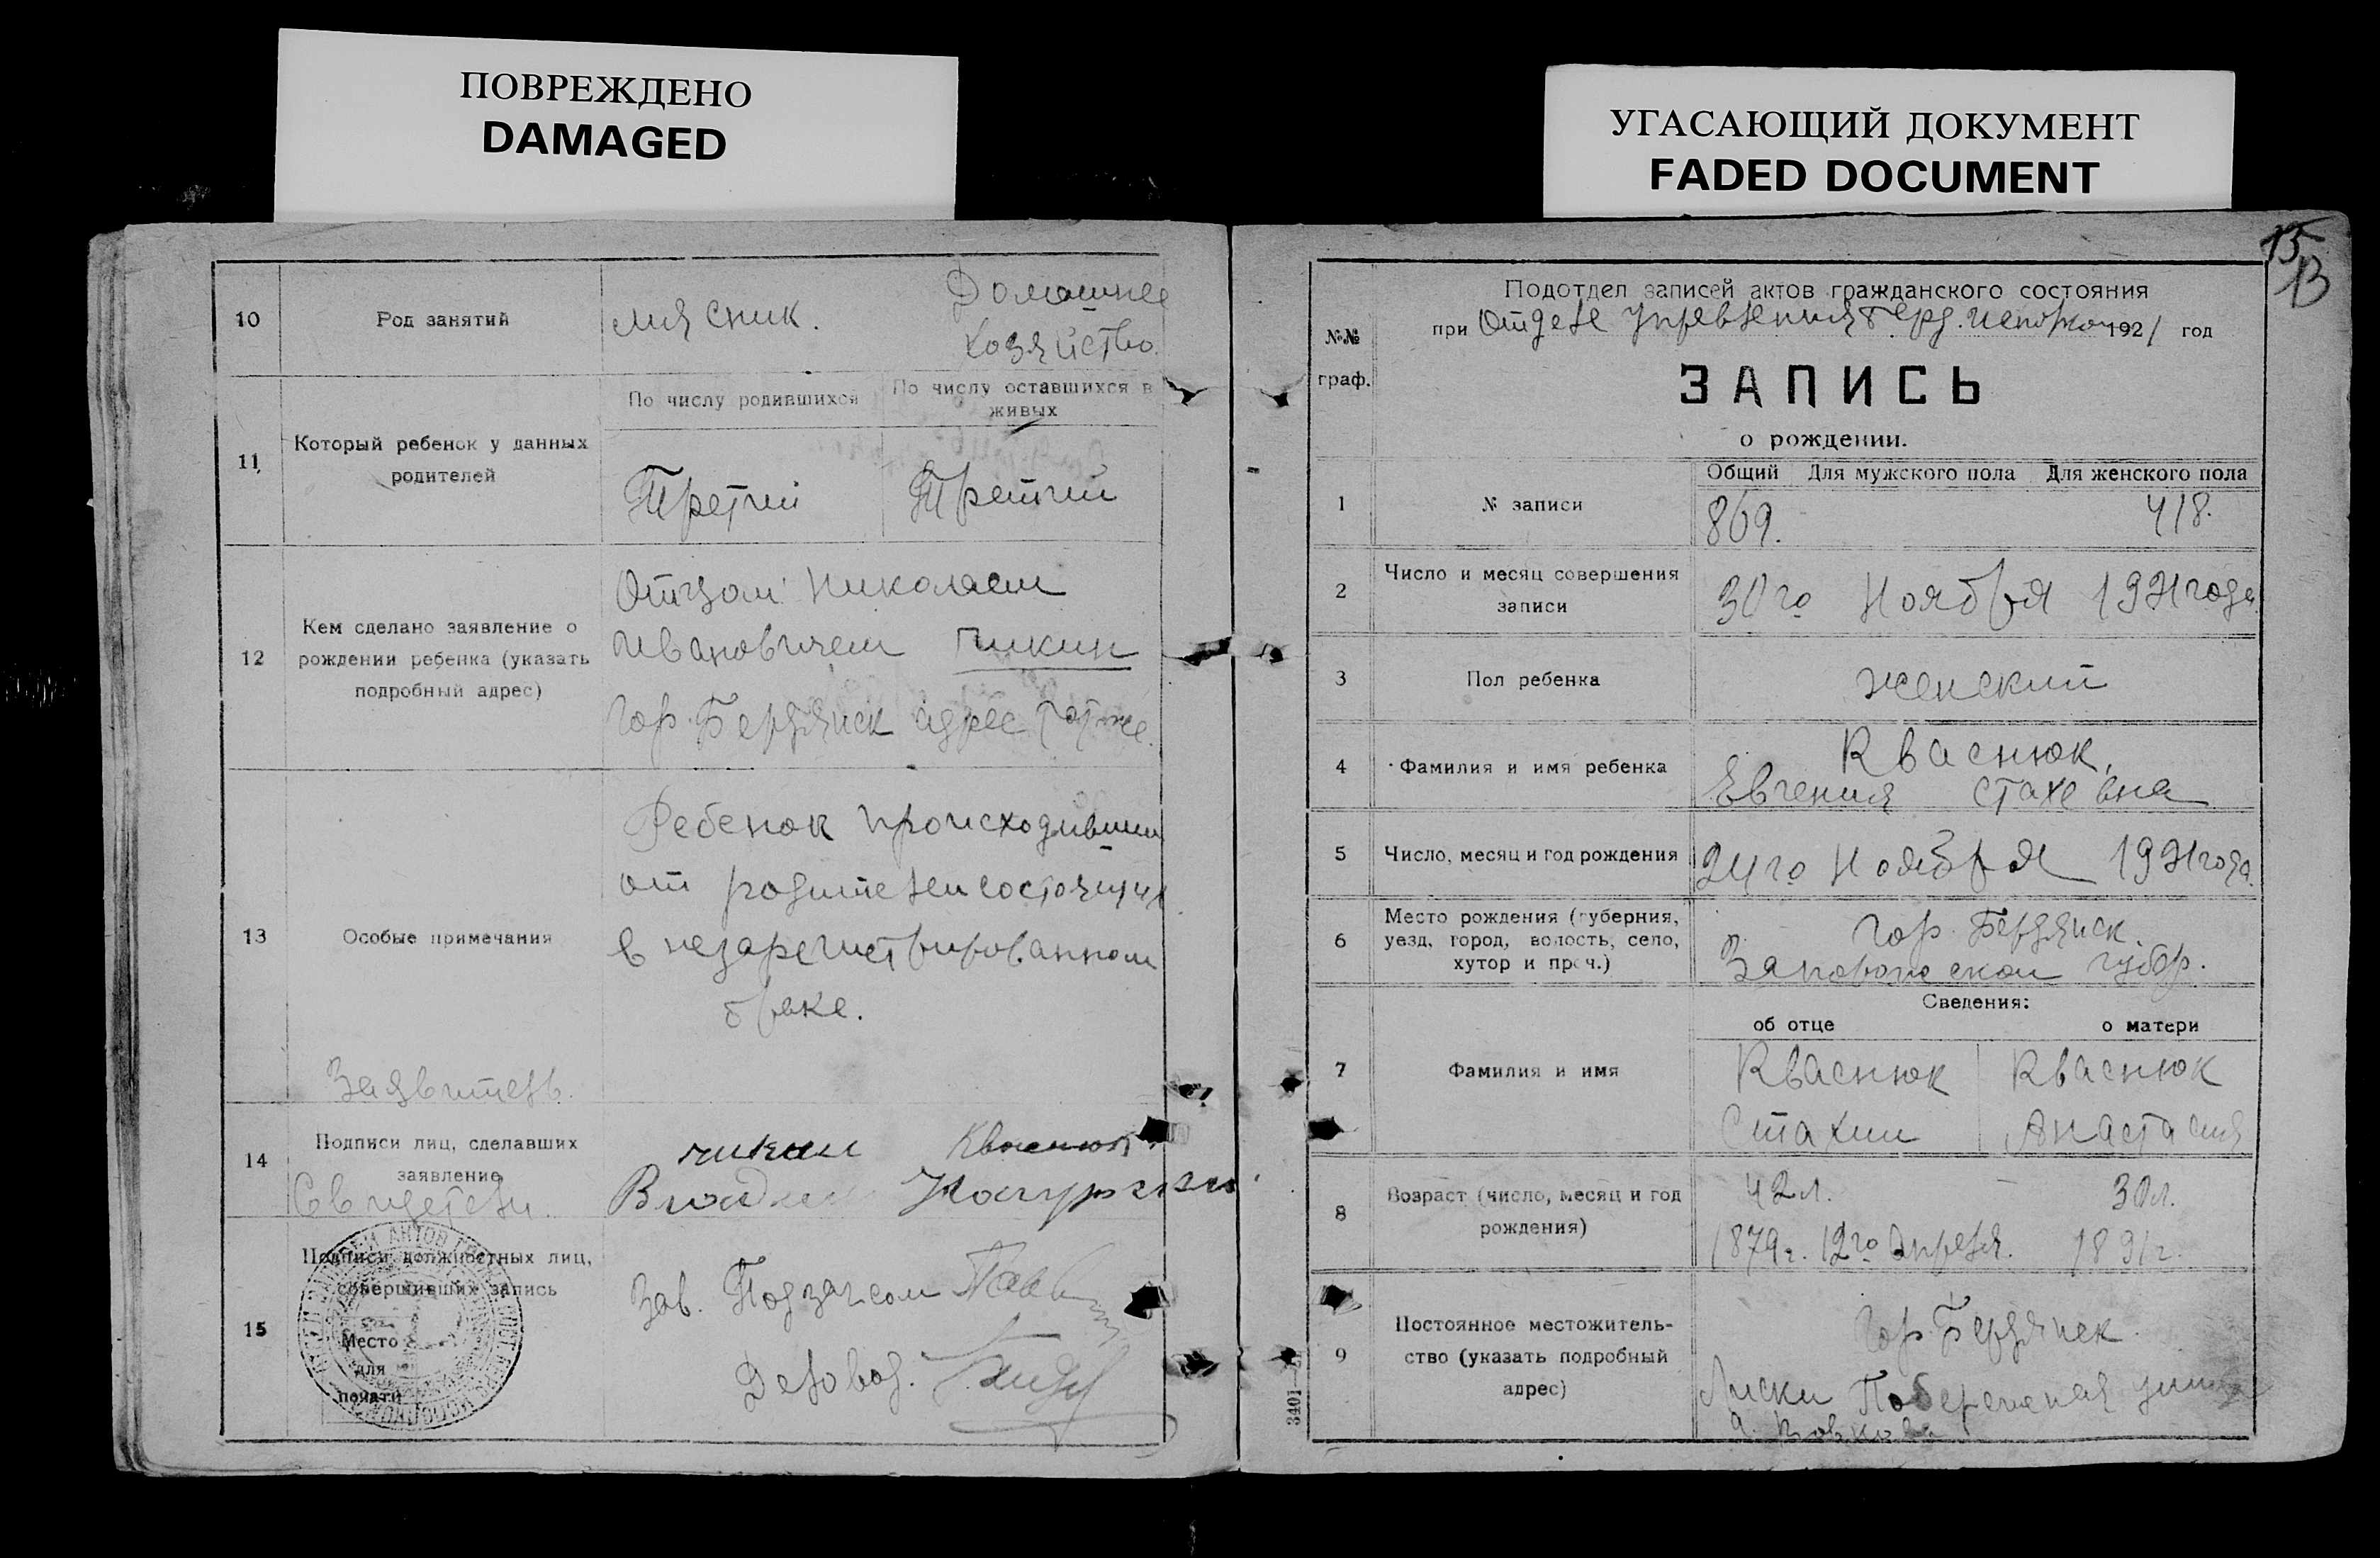 ПОВРЕЖДЕНО
DAMAGED
УГАСАЮЩИЙ ДОКУМЕНТ
FADED DOCUMENT
10
Род занятий
мясник.
Домашнее
хозяйство.
11
Который ребенок у данных
родителей
По числу родившихся
По числу оставшихся в
живых
Третий
Третий
12
Кем сделано заявление о
рождении ребенка (указать
подробный адрес)
Отцом Николаем
Ивановичем Пикин
гор. Бердянск адрес тотже.
13
Особые примечания
Ребенок происходивши
от родителей состоящих
в незарегистрированном
браке.
Заявитель.
14
Подписи лиц, сделавших
заявление
Свидетели.
Кваснюк
15
Подписи должностных лиц,
совершивших запись
Место
для
печати
Зав. Подзагсом
Деловод.
15
13
№№
граф.
Подотдел записей актов гражданского состояния
при Отделе Управления Берд. 1921 год
ЗАПИСЬ
о рождении.
Общий Для мужского пола Для женского пола
1
№ записи
869. 418.
2
Число и месяц совершения
записи
30го Ноября 1921года
3
Пол ребенка
женский
4
Фамилия и имя ребенка
Кваснюк,
Евгения Стахевна
5
Число, месяц и год рождения
24го Ноября 1921года.
6
Место рождения (губерния,
уезд, город, волость, село,
хутор и проч.)
Гор. Бердянск.
Запорожской губер.
Сведения:
об отце о матери
7
Фамилия и имя
Кваснюк Кваснюк
Стахий Анастасия
8
Возраст (число, месяц и год
рождения)
42л. 30л.
1879г. 12го Апреля. 1891г.
9
Постоянное местожитель-
ство (указать подробный
адрес)
Гор. Бердянск.
Лиски Побережная улица
3401